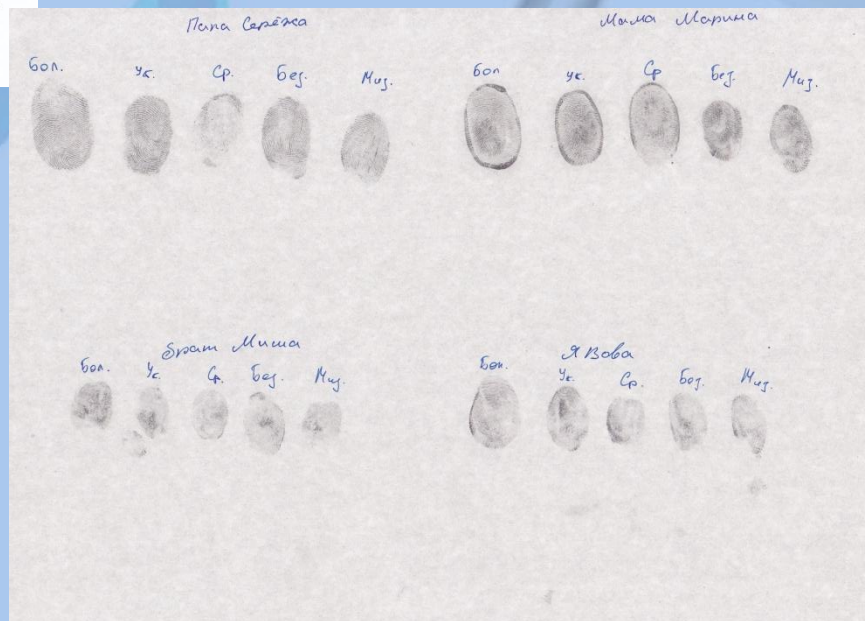 Папа Серёжа
Бол. Ук. Ср. Без. Миз.
Мама Марина
Бол Ук. Ср Без. Миз.
Брат Миша
Бол. Ук. Ср. Без. Миз.
Я Вова
Бол. Ук. Ср. Без. Миз.